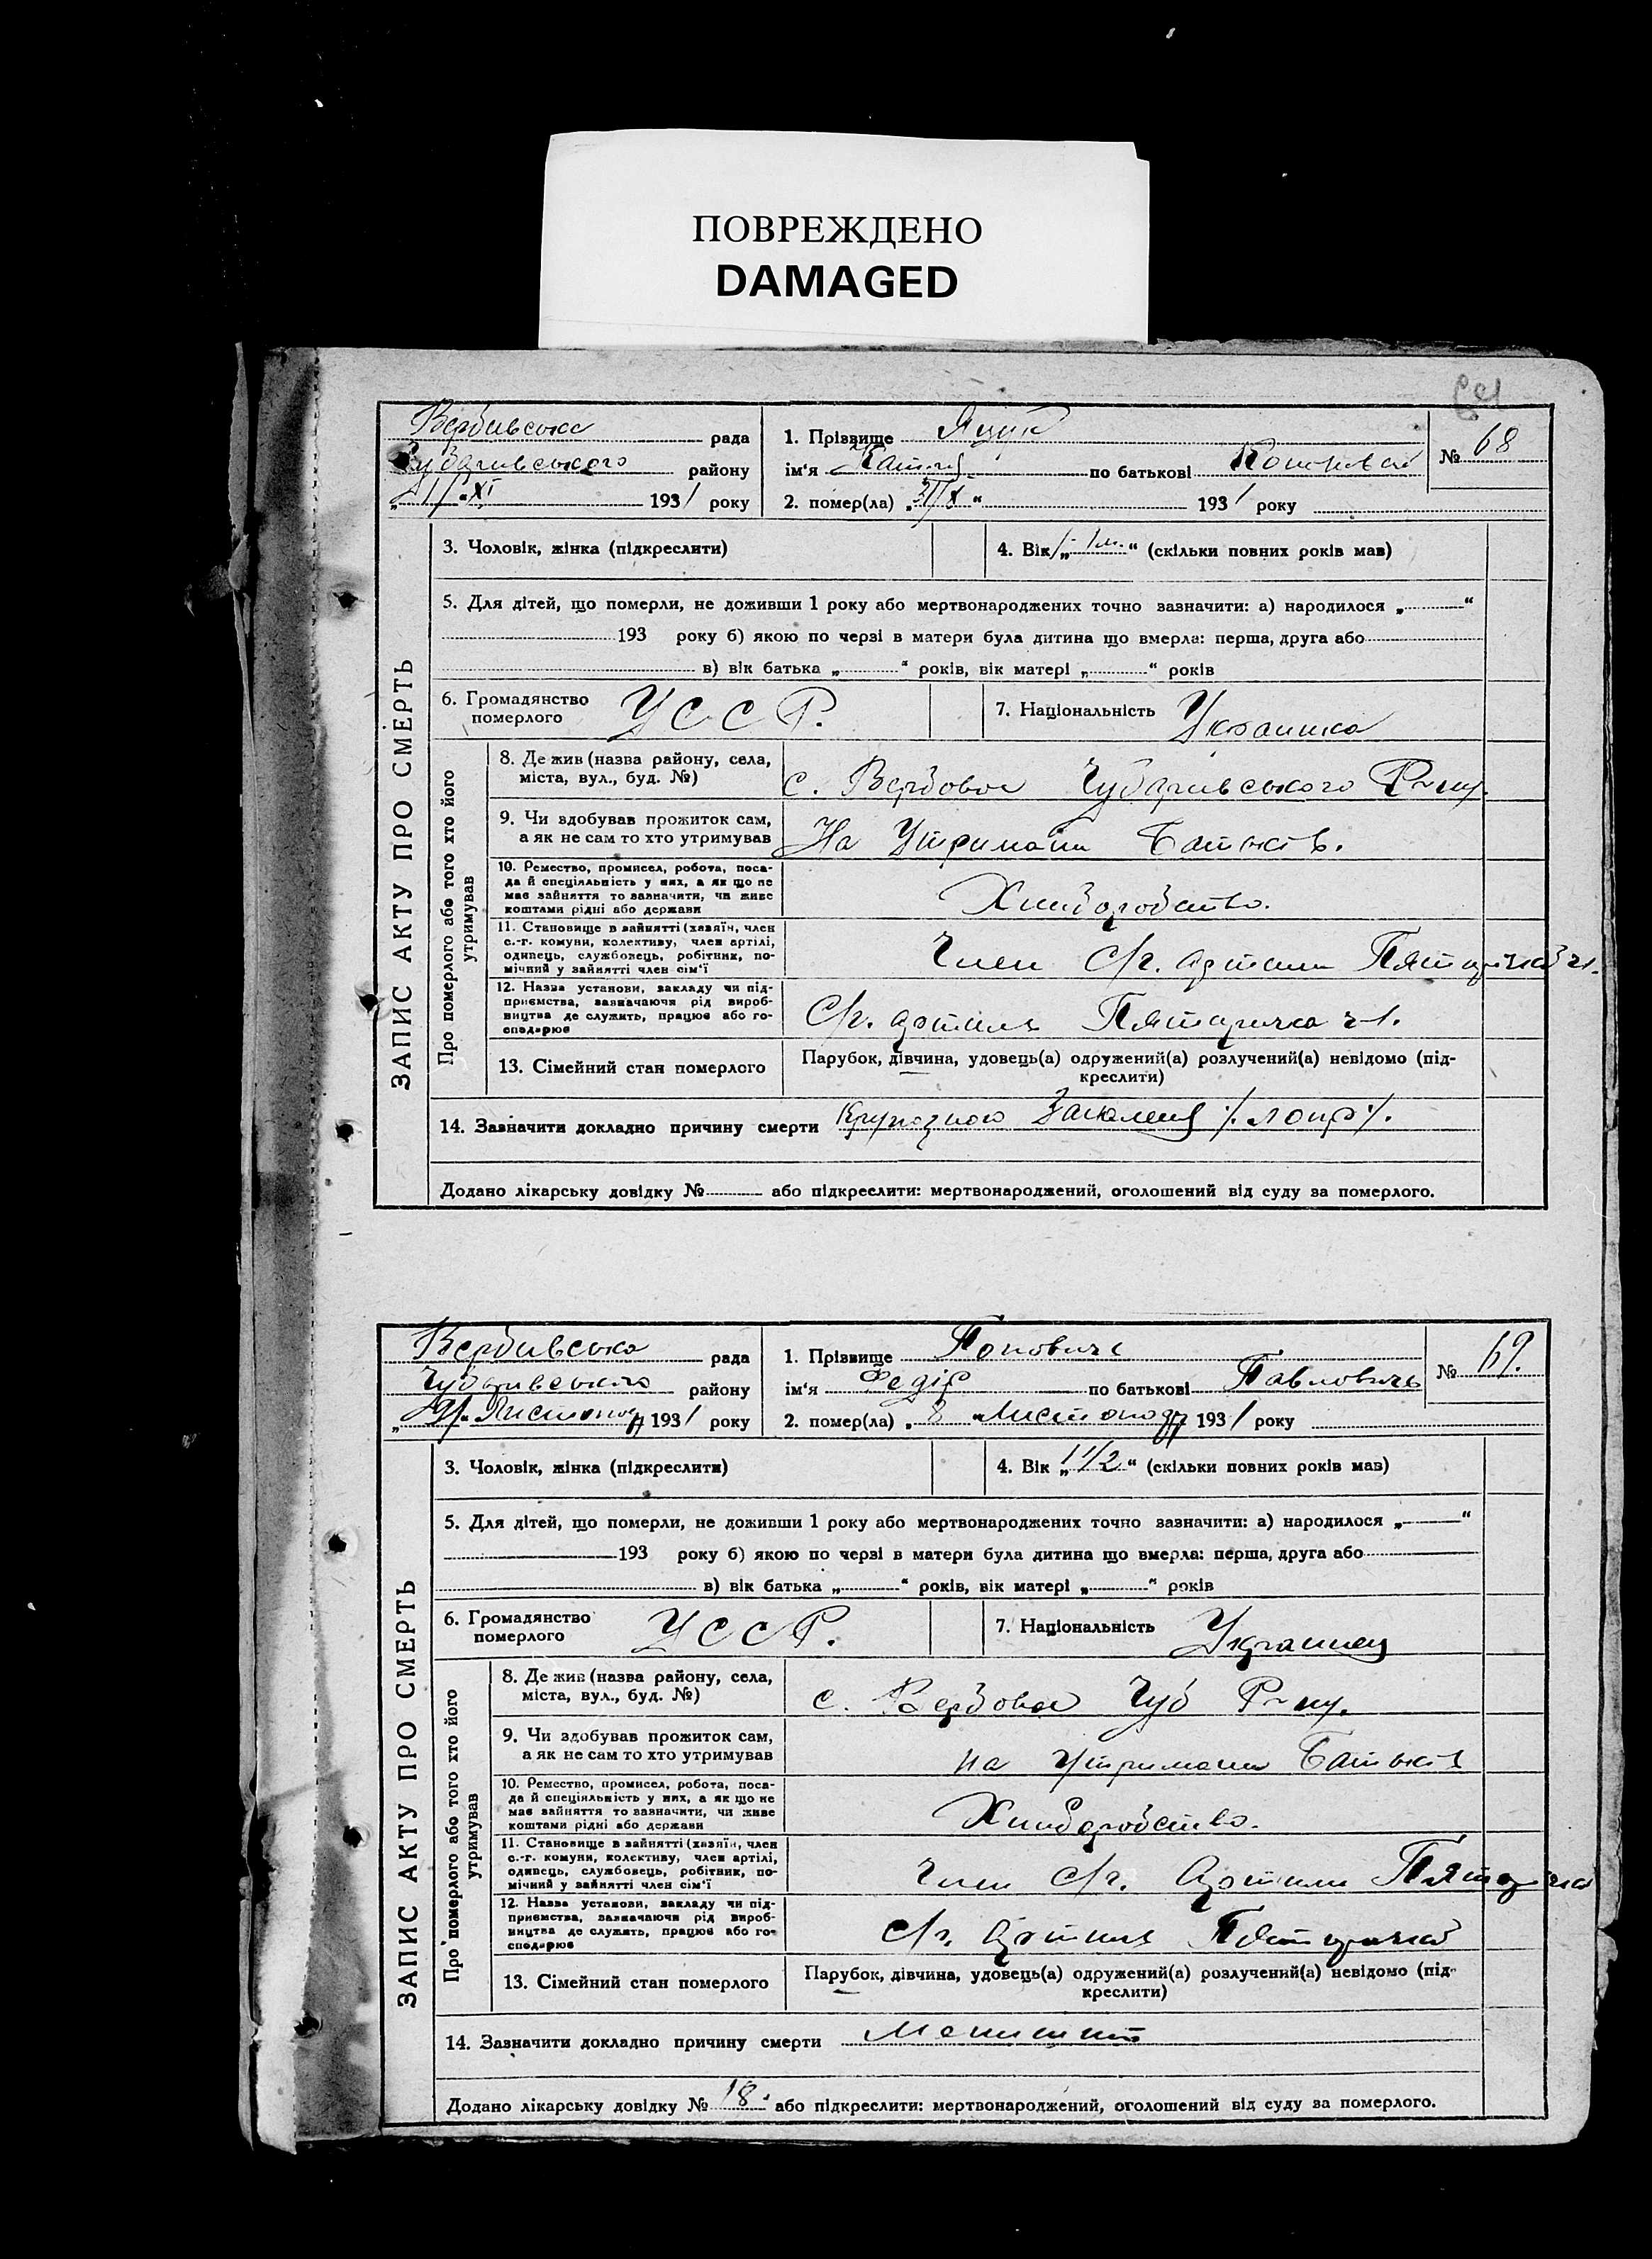 ПОВРЕЖДЕНО
DAMAGED
64
Вербивська рада
Чубаривського району
„1/“ XI 1931 року
1. Прізвище Яцук
ім‘я по батькові
2. помер(ла) „31/X“ 1931 року
№ 68
ЗАПИС АКТУ ПРО СМЕРТЬ
3. Чоловік, жінка (підкреслити)
4. Вік „1м.“ (скільки повних років мав)
5. Для дітей, що померли, не доживши 1 року або мертвонароджених точно зазначити: а) народилося „ “
193 року б) якою по черзі в матери була дитина що вмерла: перша, друга або
в) вік батька „ “ років, вік матері „ “ років
6. Громадянство
померлого УССР.
7. Національність Украинка
Про померлого або того хто його
утримував
8. Де жив (назва району, села,
міста, вул., буд. №)
с. Вербовое Чубаривського Р-ну.
9. Чи здобував прожиток сам,
а як не сам то хто утримував
На Утримани Батькив.
10. Ремество, промисел, робота, поса-
да й спеціяльність у них, а як що не
має зайняття то зазначити, чи живе
коштами рідні або держави
Хлиборобство.
11. Становище в зайнятті (хазяїн, член
с.-г. комуни, колективу, член артілі,
одинець, службовець, робітник, по-
мічний у зайнятті член сім‘ї
Член С/г. артили Пятиричка ч1.
12. Назва установи, закладу чи під-
приємства, зазначаючи рід вироб-
ництва де служить, працює або го-
сподарює
С/г. артиль Пятиричка ч1.
13. Сімейний стан померлого
Парубок, дівчина, удовець(а) одружений(а) розлучений(а) невідомо (під-
креслити)
14. Зазначити докладно причину смерти Крупозною Запаленя
Додано лікарську довідку № або підкреслити: мертвонароджений, оголошений від суду за померлого.
Вербивська рада
Чубаривського району
„9/“ Листопода 1931 року
1. Прізвище Поповичь
ім‘я Федір по батькові Павловичь
2. помер(ла) „8 “ Листопода 1931 року
№ 69.
ЗАПИС АКТУ ПРО СМЕРТЬ
3. Чоловік, жінка (підкреслити)
4. Вік „1 1/2“ (скільки повних років мав)
5. Для дітей, що померли, не доживши 1 року або мертвонароджених точно зазначити: а) народилося „ “
193 року б) якою по черзі в матери була дитина що вмерла: перша, друга або
в) вік батька „ “ років, вік матері „ “ років
6. Громадянство
померлого УССР.
7. Національність Украинец
Про померлого або того хто його
утримував
8. Де жив (назва району, села,
міста, вул., буд. №)
с. Вербовое Чуб Р-ну.
9. Чи здобував прожиток сам,
а як не сам то хто утримував
на Утримани Батькив
10. Ремество, промисел, робота, поса-
да й спеціяльність у них, а як що не
має зайняття то зазначити, чи живе
коштами рідні або держави
Хлиборобство.
11. Становище в зайнятті (хазяїн, член
с.-г. комуни, колективу, член артілі,
одинець, службовець, робітник, по-
мічний у зайнятті член сім‘ї
Член с/г. Артили Пятиричка
12. Назва установи, закладу чи під-
приємства, зазначаючи рід вироб-
ництва де служить, працює або го-
сподарює
с/г. Артиль Пятиричка
13. Сімейний стан померлого
Парубок, дівчина, удовець(а) одружений(а) розлучений(а) невідомо (під-
креслити)
14. Зазначити докладно причину смерти Менингит
Додано лікарську довідку № 18. або підкреслити: мертвонароджений, оголошений від суду за померлого.